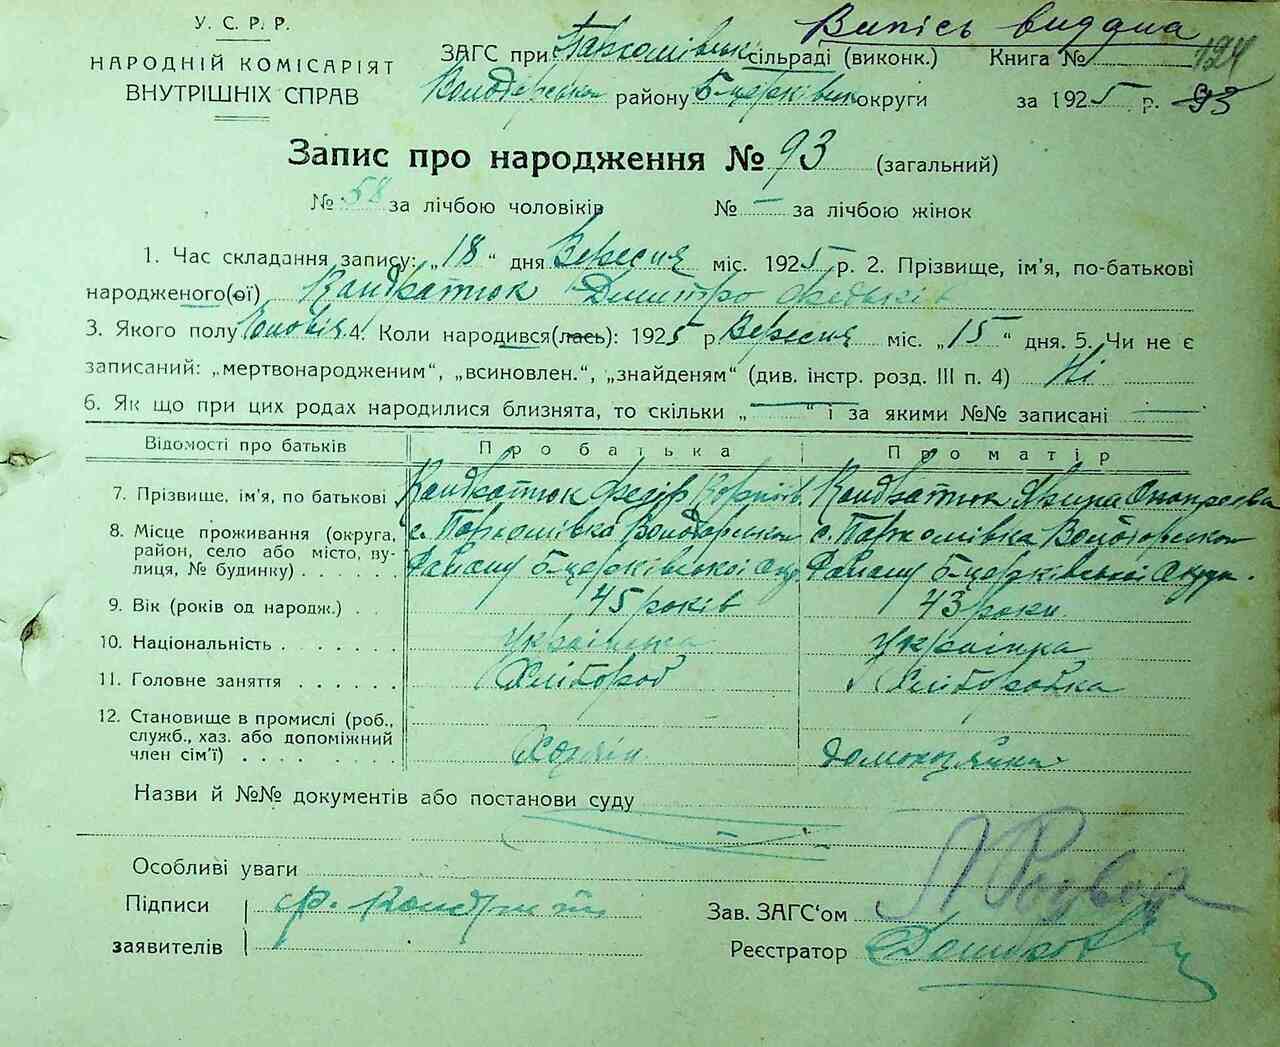 У. С. Р. Р.
НАРОДНІЙ КОМІСАРІЯТ
ВНУТРІШНІХ СПРАВ
Випісь виддана
ЗАГС при Пархомівськ сільраді (виконк.) Книга №
124
Володарськом району Б-церківськ округи за 1925 р. 93
Запис про народження № 93 (загальний)
№ 58 за лічбою чоловіків № — за лічбою жінок
1. Час складання запису: „18“ дня Вересня міс. 1925 р. 2. Прізвище, ім'я, по-батькові
народженого(ої) Кондратюк Дмитро Федьків
3. Якого полу Чоловіч. 4. Коли народився(лась): 1925 р Вересня міс. „15“ дня. 5. Чи не є
записаний: „мертвонародженим“, „всиновлен.“, „знайденям“ (див. інстр. розд. III п. 4) Ні
6. Як що при цих родах народилися близнята, то скільки „—“ і за якими №№ записані —
Відомості про батьків Про батька Про матір
7. Прізвище, ім'я, по батькові Кондратюк Федір Кондратюк Ярина
8. Місце проживання (округа, район, село або місто, вулиця, № будинку) с. Пархомівка Володарськом с. Пархомівка Володарськом
Району Б-церківської Окр Району Б-церківської Округи.
9. Вік (років од народж.) 45 років 43 роки
10. Національність Українець Українка
11. Головне заняття Хлібороб Хліборобка
12. Становище в промислі (роб., служб., хаз. або допоміжний член сім'ї) Хозяїн домохозяйка
Назви й №№ документів або постанови суду
Особливі уваги
Підписи Ф. Кондратю
Зав. ЗАГС'ом
заявителів
Реєстратор